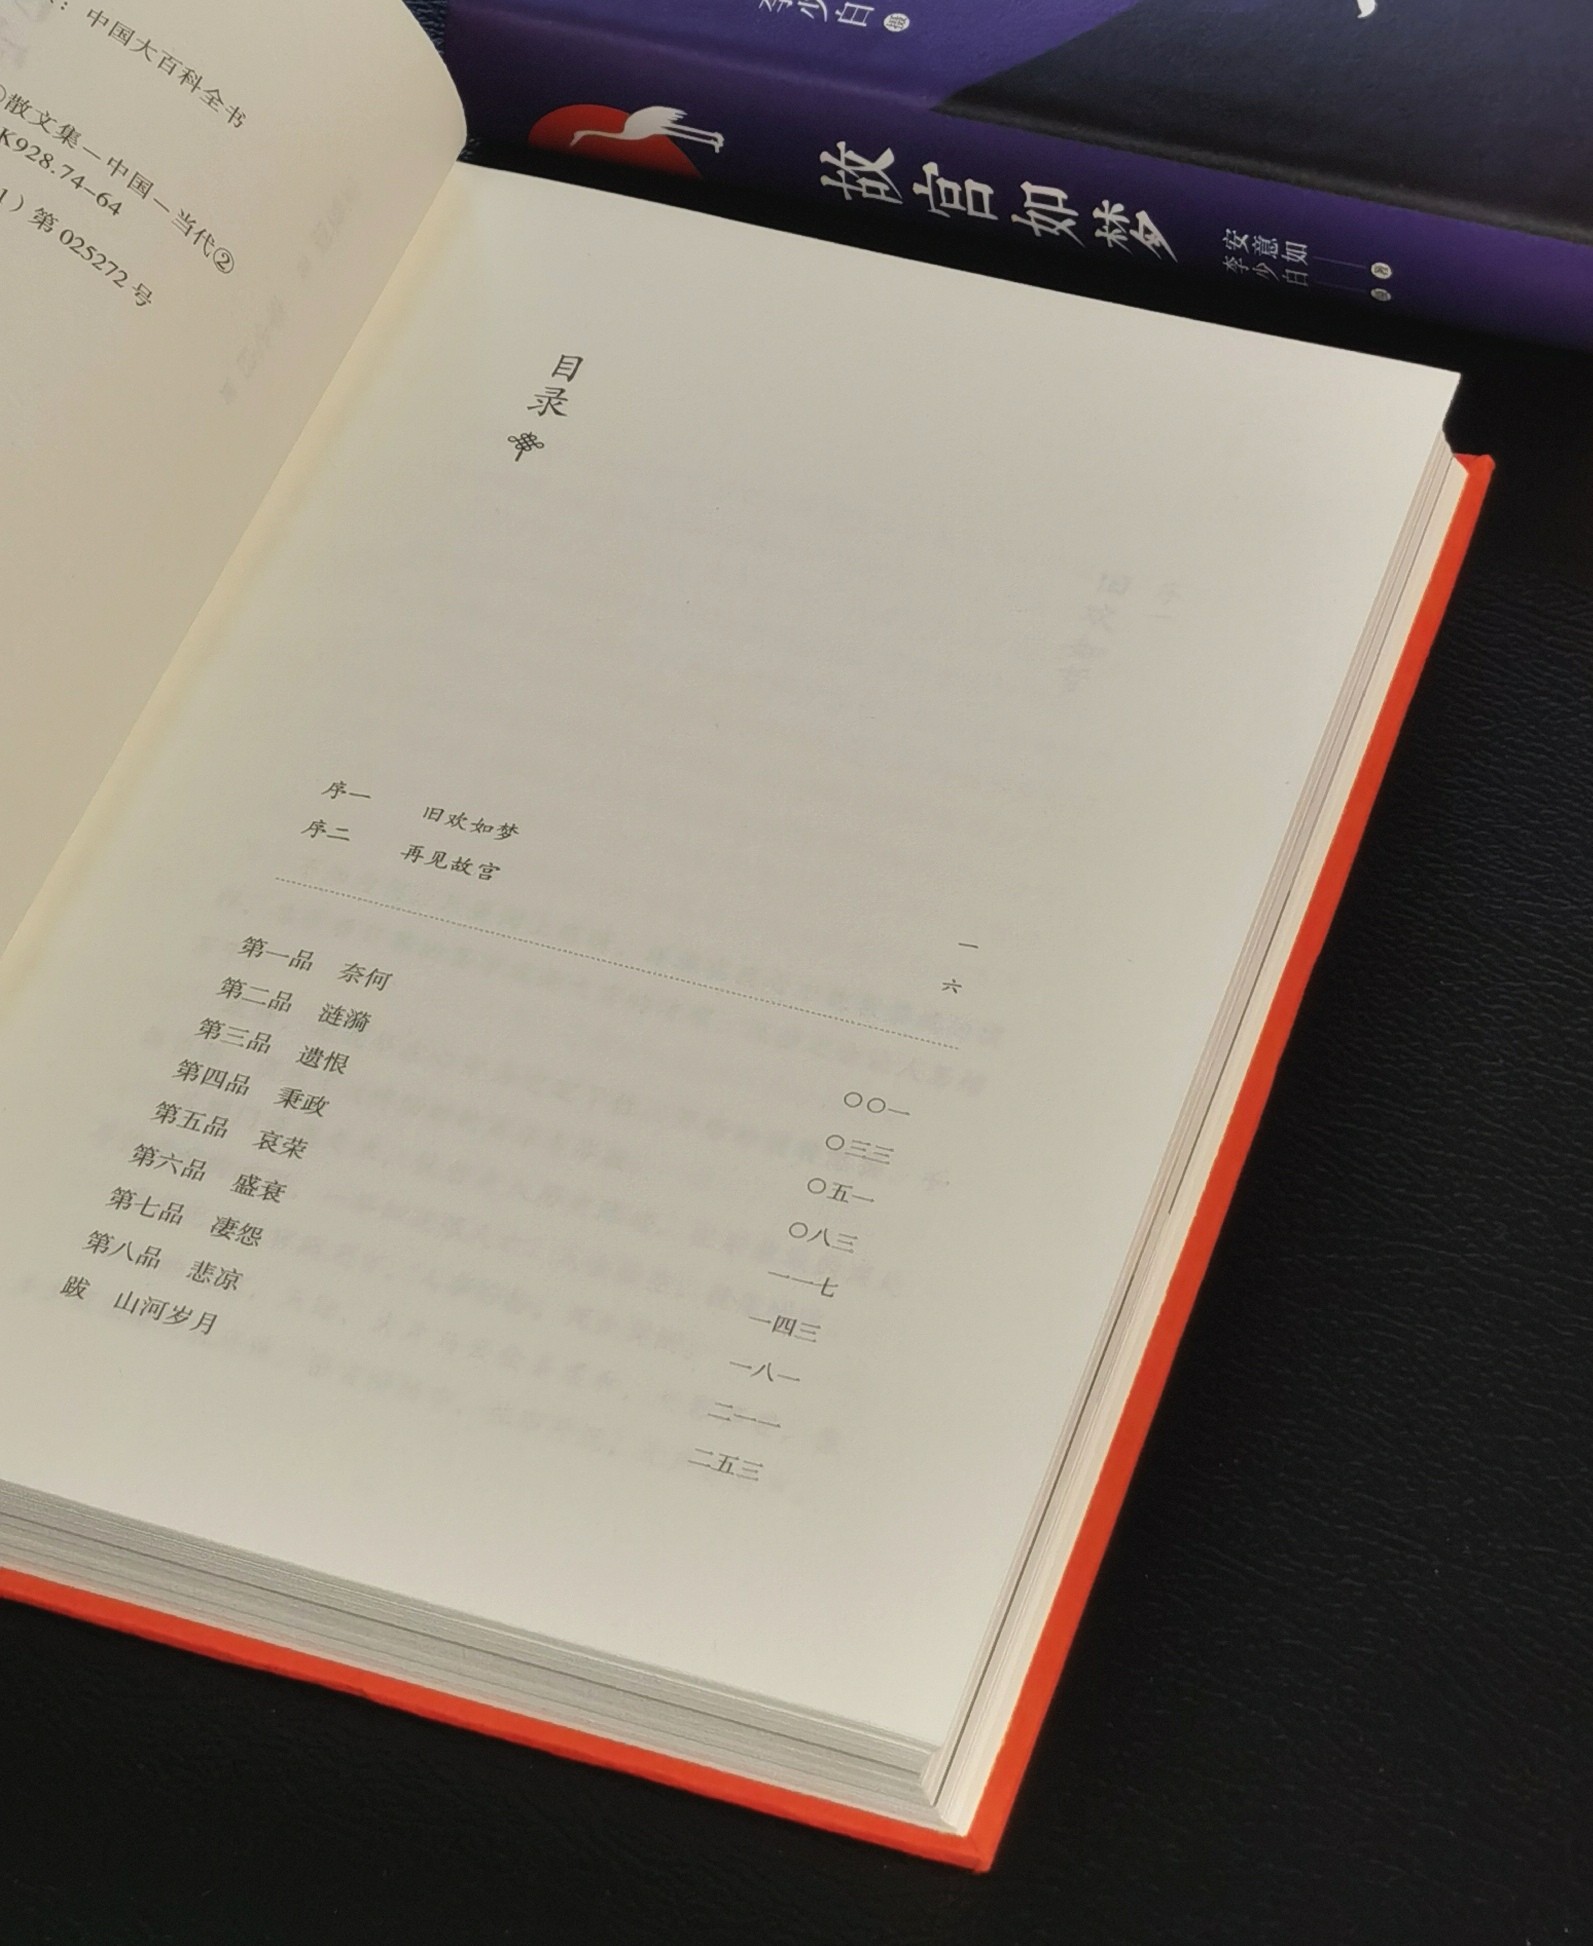 中国大百科全书
散文集—中国—当代②
K928.74-64
第 025272 号
李少白 摄
故宫如梦
安意如 著
李少白 摄
目录
序一 旧欢如梦 一
序二 再见故宫 六
第一品 奈何 〇〇一
第二品 涟漪 〇三三
第三品 遗恨 〇五一
第四品 秉政 〇八三
第五品 哀荣 一一七
第六品 盛衰 一四三
第七品 凄怨 一八一
第八品 悲凉 二一一
跋 山河岁月 二五三